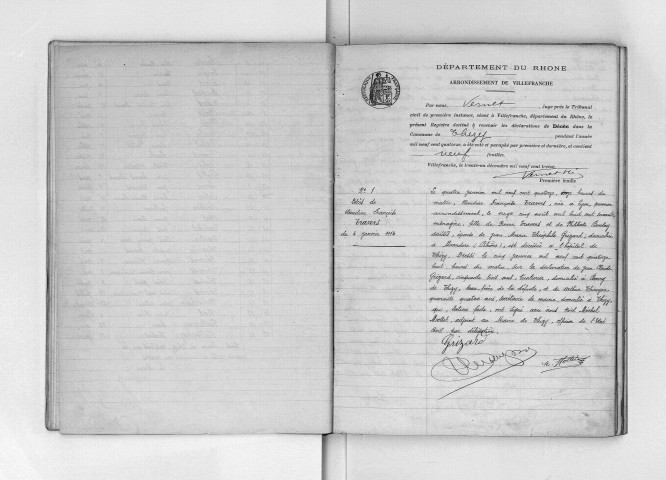 DÉPARTEMENT DU RHONE
ARRONDISSEMENT DE VILLEFRANCHE
Par nous, Vernet, Juge près le Tribunal
civil de première instance, séant à Villefranche, département du Rhône, le
présent Registre destiné à recevoir les déclarations de Décès dans la
Commune de Thizy pendant l'année
mil neuf cent quatorze, a été coté et paraphé par première et dernière, et contient
neuf feuillets.
Villefranche, le trente-un décembre mil neuf cent treize.
Première feuille
N° 1
Décès de
Claudine Françoise
Travers
du 4 janvier 1914
Le quatre janvier mil neuf cent quatorze, onze heures du
matin, Claudine Françoise Travers, née à Lyon, premier
arrondissement, le vingt cinq août mil huit cent
ménagère, fille de Travers et de
décédés, épouse de Jean Marie Théophile Grizard, domicilié
à (Rhône), est décédée à l'hôpital de
Thizy. Dressé le cinq janvier mil neuf cent quatorze
huit heures du matin, sur la déclaration de Jean Claude
Grizard, cinquante huit ans, domicilié à Bourg
de Thizy, beau-frère de la défunte, et de
quarante quatre ans, secrétaire de mairie, domicilié à Thizy,
qui, lecture faite, ont signé avec nous Michel
Mottet, adjoint au Maire de Thizy, officier de l'Etat
Civil par délégation.
Grizard